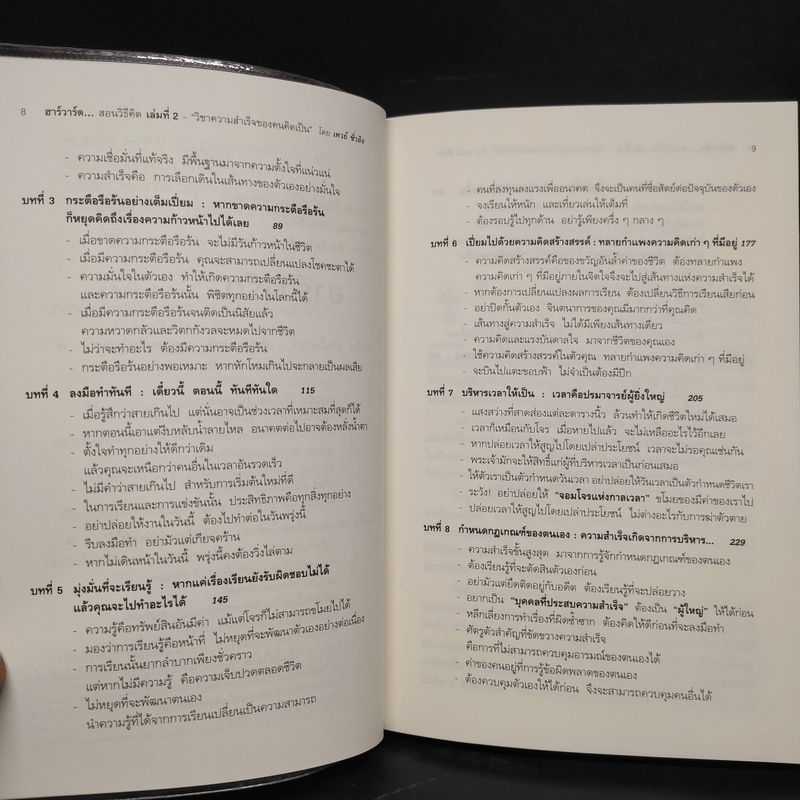 8 ฮาร์วาร์ด... สอนวิธีคิด เล่มที่ 2 - "วิชาความสำเร็จของคนคิดเป็น" โดย เหวย์ ซิ่วอิง
- ความเชื่อมั่นที่แท้จริง มีพื้นฐานมาจากความตั้งใจที่แน่วแน่
- ความสำเร็จคือ การเลือกเดินในเส้นทางของตัวเองอย่างมั่นใจ
บทที่ 3 กระตือรือร้นอย่างเต็มเปี่ยม : หากขาดความกระตือรือร้น
ก็หยุดคิดถึงเรื่องความก้าวหน้าไปได้เลย 89
- เมื่อขาดความกระตือรือร้น จะไม่มีวันก้าวหน้าในชีวิต
- เมื่อมีความกระตือรือร้น คุณจะสามารถเปลี่ยนแปลงโชคชะตาได้
- ความมั่นใจในตัวเอง ทำให้เกิดความกระตือรือร้น
และความกระตือรือร้นนั้น พิชิตทุกอย่างในโลกนี้ได้
- เมื่อมีความกระตือรือร้นจนติดเป็นนิสัยแล้ว
ความหวาดกลัวและวิตกกังวลจะหมดไปจากชีวิต
- ไม่ว่าจะทำอะไร ต้องมีความกระตือรือร้น
- กระตือรือร้นอย่างพอเหมาะ หากหักโหมเกินไปจะกลายเป็นผลเสีย
บทที่ 4 ลงมือทำทันที : เดี๋ยวนี้ ตอนนี้ ทันทีทันใด 115
- เมื่อรู้สึกว่าสายเกินไป แต่นั่นอาจเป็นช่วงเวลาที่เหมาะสมที่สุดก็ได้
- หากตอนนี้เอาแต่งีบหลับน้ำลายไหล อนาคตต่อไปอาจต้องหลั่งน้ำตา
- ตั้งใจทำทุกอย่างให้ดีกว่าเดิม
แล้วคุณจะเหนือกว่าคนอื่นในเวลาอันรวดเร็ว
- ไม่มีคำว่าสายเกินไป สำหรับการเริ่มต้นใหม่ที่ดี
- ในการเรียนและการแข่งขันนั้น ประสิทธิภาพคือทุกสิ่งทุกอย่าง
- อย่าปล่อยให้งานในวันนี้ ต้องไปทำต่อในวันพรุ่งนี้
- รีบลงมือทำ อย่ามัวแต่เกียจคร้าน
- หากไม่เดินหน้าในวันนี้ พรุ่งนี้คงต้องวิ่งไล่ตาม
บทที่ 5 มุ่งมั่นที่จะเรียนรู้ : หากแค่เรื่องเรียนยังรับผิดชอบไม่ได้
แล้วคุณจะไปทำอะไรได้ 145
- ความรู้คือทรัพย์สินอันมีค่า แม้แต่โจรก็ไม่สามารถขโมยไปได้
- มองว่าการเรียนรู้คือหน้าที่ ไม่หยุดที่จะพัฒนาตัวเองอย่างต่อเนื่อง
- การเรียนนั้นยากลำบากเพียงชั่วคราว
แต่หากไม่มีความรู้ คือความเจ็บปวดตลอดชีวิต
- ไม่หยุดที่จะพัฒนาตนเอง
นำความรู้ที่ได้จากการเรียนเปลี่ยนเป็นความสามารถ
9
- คนที่ลงทุนลงแรงเพื่ออนาคต จึงจะเป็นคนที่ซื่อสัตย์ต่อปัจจุบันของตัวเอง
- จงเรียนให้หนัก และเที่ยวเล่นให้เต็มที่
- ต้องรอบรู้ไปทุกด้าน อย่ารู้เพียงครึ่ง ๆ กลาง ๆ
บทที่ 6 เปี่ยมไปด้วยความคิดสร้างสรรค์ : ทลายกำแพงความคิดเก่า ๆ ที่มีอยู่ 177
- ความคิดสร้างสรรค์คือของขวัญอันล้ำค่าของชีวิต ต้องทลายกำแพง
ความคิดเก่า ๆ ที่มีอยู่ภายในจิตใจจึงจะไปสู่เส้นทางแห่งความสำเร็จได้
- หากต้องการเปลี่ยนแปลงผลการเรียน ต้องเปลี่ยนวิธีการเรียนเสียก่อน
- อย่าปิดกั้นตัวเอง จินตนาการของคุณมีมากกว่าที่คุณคิด
- เส้นทางสู่ความสำเร็จ ไม่ได้มีเพียงเส้นทางเดียว
- ความคิดและแรงบันดาลใจ มาจากชีวิตของคุณเอง
- ใช้ความคิดสร้างสรรค์ในตัวคุณ ทลายกำแพงความคิดเก่า ๆ ที่มีอยู่
- จะบินไปแตะขอบฟ้า ไม่จำเป็นต้องมีปีก
บทที่ 7 บริหารเวลาให้เป็น : เวลาคือปรมาจารย์ผู้ยิ่งใหญ่ 205
- แสงสว่างที่สาดส่องแต่ละตารางนิ้ว ล้วนทำให้เกิดชีวิตใหม่ได้เสมอ
- เวลาก็เหมือนกับโจร เมื่อหายไปแล้ว จะไม่เหลืออะไรไว้อีกเลย
- หากปล่อยเวลาให้สูญไปโดยเปล่าประโยชน์ เวลาจะไม่รอคุณเช่นกัน
- พระเจ้ามักจะให้สิทธิ์แก่ผู้ที่บริหารเวลาเป็นก่อนเสมอ
- ให้ตัวเราเป็นตัวกำหนดวันเวลา อย่าปล่อยให้วันเวลาเป็นตัวกำหนดชีวิตเรา
- ระวัง! อย่าปล่อยให้ "จอมโจรแห่งกาลเวลา" ขโมยของมีค่าของเราไป
- ปล่อยเวลาให้สูญไปโดยเปล่าประโยชน์ ไม่ต่างอะไรกับการฆ่าตัวตาย
บทที่ 8 กำหนดกฎเกณฑ์ของตนเอง : ความสำเร็จเกิดจากการบริหาร... 229
- ความสำเร็จขั้นสูงสุด มาจากการรู้จักกำหนดกฎเกณฑ์ของตนเอง
- ต้องเรียนรู้ที่จะตัดสินตัวเองก่อน
- อย่ามัวแต่ยึดติดอยู่กับอดีต ต้องเรียนรู้ที่จะปล่อยวาง
- อยากเป็น "บุคคลที่ประสบความสำเร็จ" ต้องเป็น "ผู้ใหญ่" ให้ได้ก่อน
- หลีกเลี่ยงการทำเรื่องที่ผิดซ้ำซาก ต้องคิดให้ดีก่อนที่จะลงมือทำ
- ศัตรูตัวสำคัญที่ขัดขวางความสำเร็จ
คือการที่ไม่สามารถควบคุมอารมณ์ของตนเองได้
- ค่าของคนอยู่ที่การรู้ข้อผิดพลาดของตนเอง
- ต้องควบคุมตัวเองให้ได้ก่อน จึงจะสามารถควบคุมคนอื่นได้